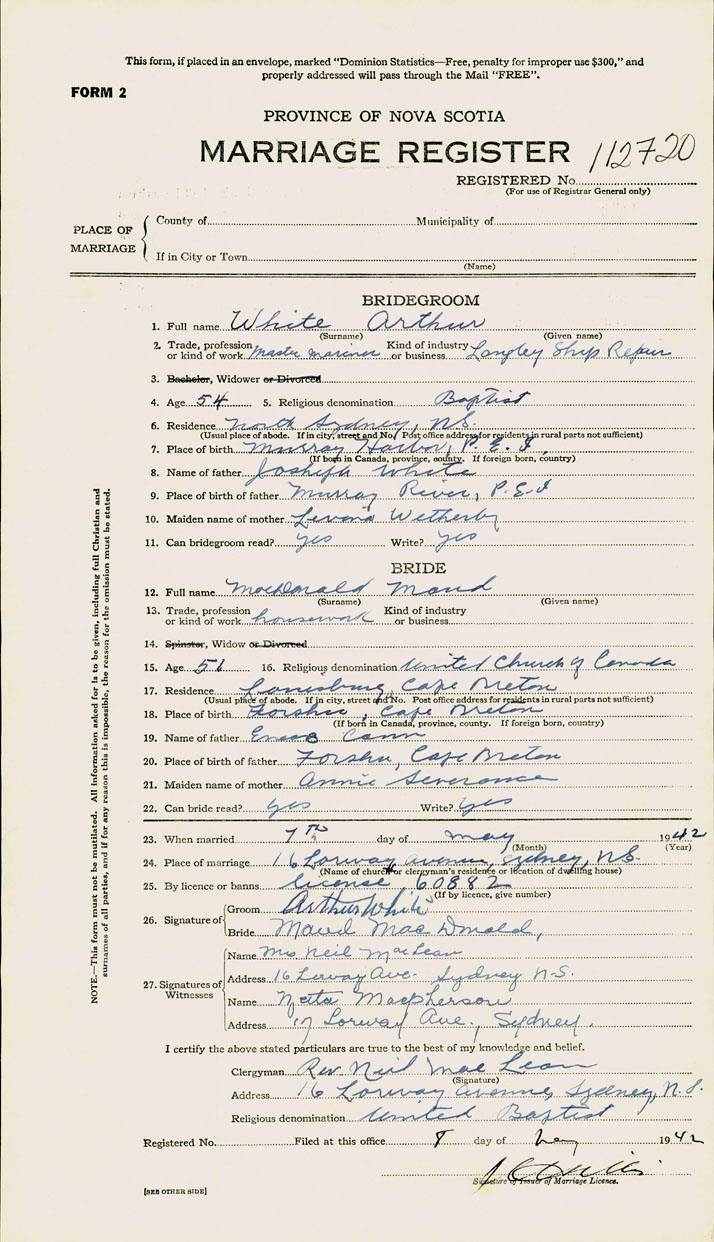 This form, if placed in an envelope, marked "Dominion Statistics—Free, penalty for improper use $300," and
properly addressed will pass through the Mail "FREE".
FORM 2
PROVINCE OF NOVA SCOTIA
MARRIAGE REGISTER 112720
REGISTERED No.
(For use of Registrar General only)
PLACE OF MARRIAGE
County of Municipality of
If in City or Town
(Name)
BRIDEGROOM
1. Full name White Arthur
(Surname) (Given name)
2. Trade, profession or kind of work Master Mariner Kind of industry or business Langley Ship Repair
3. Bachelor, Widower or Divorced
4. Age 54 5. Religious denomination Baptist
6. Residence North Sydney, N.S.
(Usual place of abode. If in city, street and No. Post office address for residents in rural parts not sufficient)
7. Place of birth Murray Harbor, P.E.I.
(If born in Canada, province, county. If foreign born, country)
8. Name of father Joshiph White
9. Place of birth of father Murray River, P.E.I
10. Maiden name of mother Wetherby
11. Can bridegroom read? yes Write? yes
BRIDE
12. Full name MacDonald Maud
(Surname) (Given name)
13. Trade, profession or kind of work housework Kind of industry or business
14. Spinster, Widow or Divorced
15. Age 51 16. Religious denomination United Church of Canada
17. Residence Louisburg, Cape Breton
(Usual place of abode. If in city, street and No. Post office address for residents in rural parts not sufficient)
18. Place of birth Forshu, Cape Breton
(If born in Canada, province, county. If foreign born, country)
19. Name of father Cann
20. Place of birth of father Forshu, Cape Breton
21. Maiden name of mother Annie Severance
22. Can bride read? yes Write? yes
23. When married 7TH day of May 1942
(Month) (Year)
24. Place of marriage 16 Lorway Avenue, Sydney, N.S.
(Name of church or clergyman's residence or location of dwelling house)
25. By licence or banns license, 60882
(If by licence, give number)
26. Signature of
Groom Arthur White
Bride Maud MacDonald,
27. Signatures of Witnesses
Name Mrs Neil MacLean
Address 16 Lorway Ave. Sydney N.S.
Name Macpherson
Address 17 Lorway Ave., Sydney.
I certify the above stated particulars are true to the best of my knowledge and belief.
Clergyman Rev. Neil MacLean
(Signature)
Address 16 Lorway Avenue, Sydney, N.S.
Religious denomination United Baptist
Registered No. Filed at this office 8 day of May 1942
Signature of Issuer of Marriage Licence.
[SEE OTHER SIDE]
NOTE.—This form must not be mutilated. All information asked for is to be given, including full Christian and
surnames of all parties, and if for any reason this is impossible, the reason for the omission must be stated.